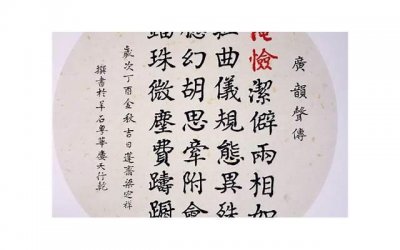 廣韻聲傳
憸潔僻兩相如
曲儀規態異殊
幻胡思牽附會
珠微塵費躊躕
歲次丁酉金秋吉日蓬齋梁定祥
撰書於羊石粵華慶天行乾